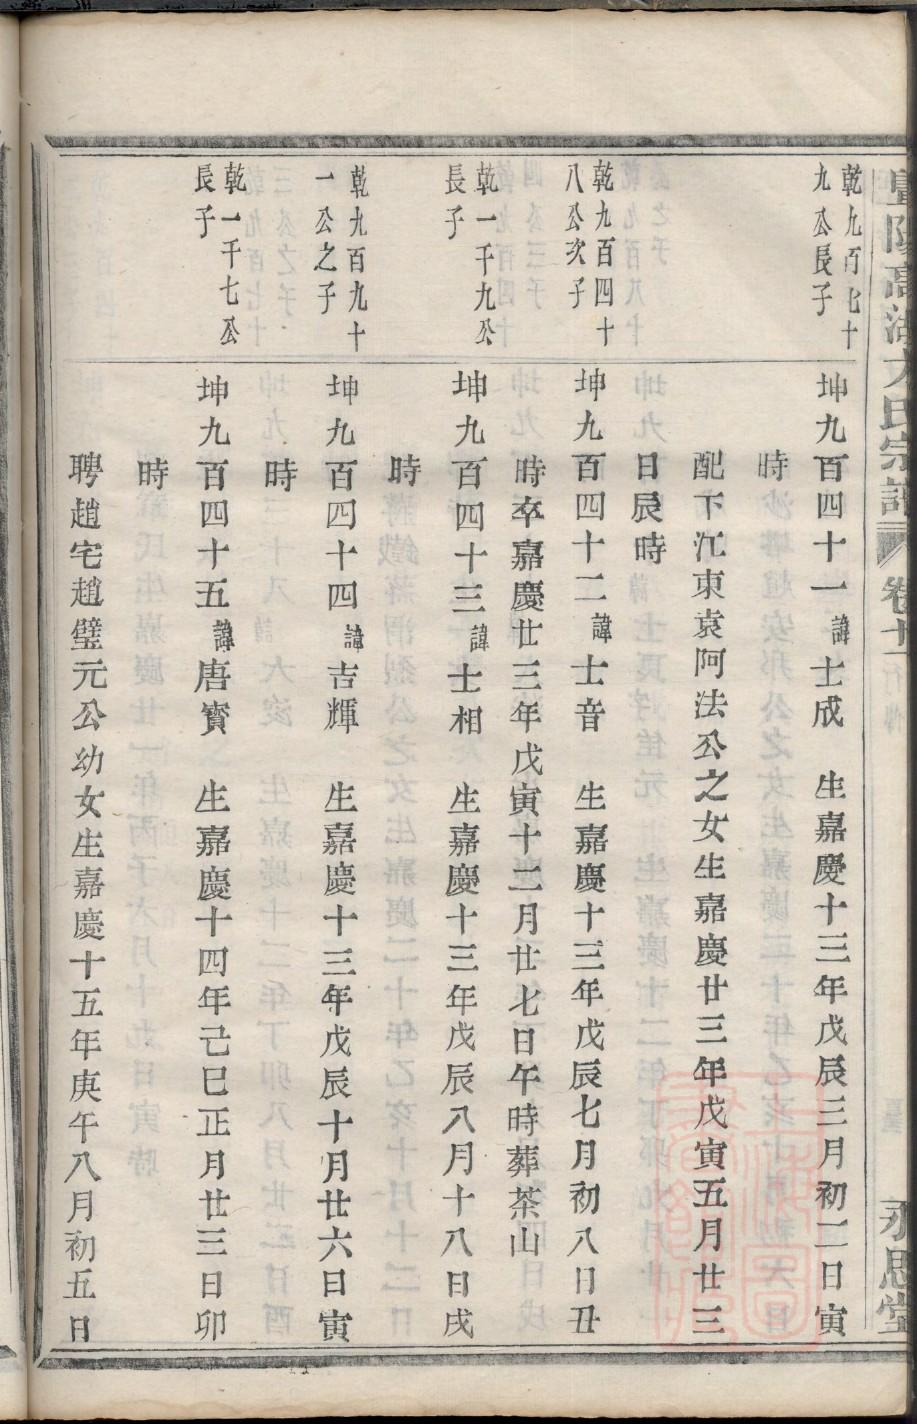 高湖
氏宗譜
卷十
永思堂
乾九百七十
九公長子
坤九百四十一諱士成 生嘉慶十三年戊辰三月初二日寅
時
配下江東袁阿法公之女生嘉慶廿三年戊寅五月廿三
日辰時
乾九百四十
八公次子
坤九百四十二諱士音 生嘉慶十三年戊辰七月初八日丑
時卒嘉慶廿三年戊寅十二月廿七日午時葬茶山
乾一千九公
長子
坤九百四十三諱士相 生嘉慶十三年戊辰八月十八日戌
時
乾九百九十
一公之子
坤九百四十四諱吉輝 生嘉慶十三年戊辰十月廿六日寅
時
乾一千七公
長子
坤九百四十五諱唐寳 生嘉慶十四年己巳正月廿三日卯
時
聘趙宅趙璧元公幼女生嘉慶十五年庚午八月初五日